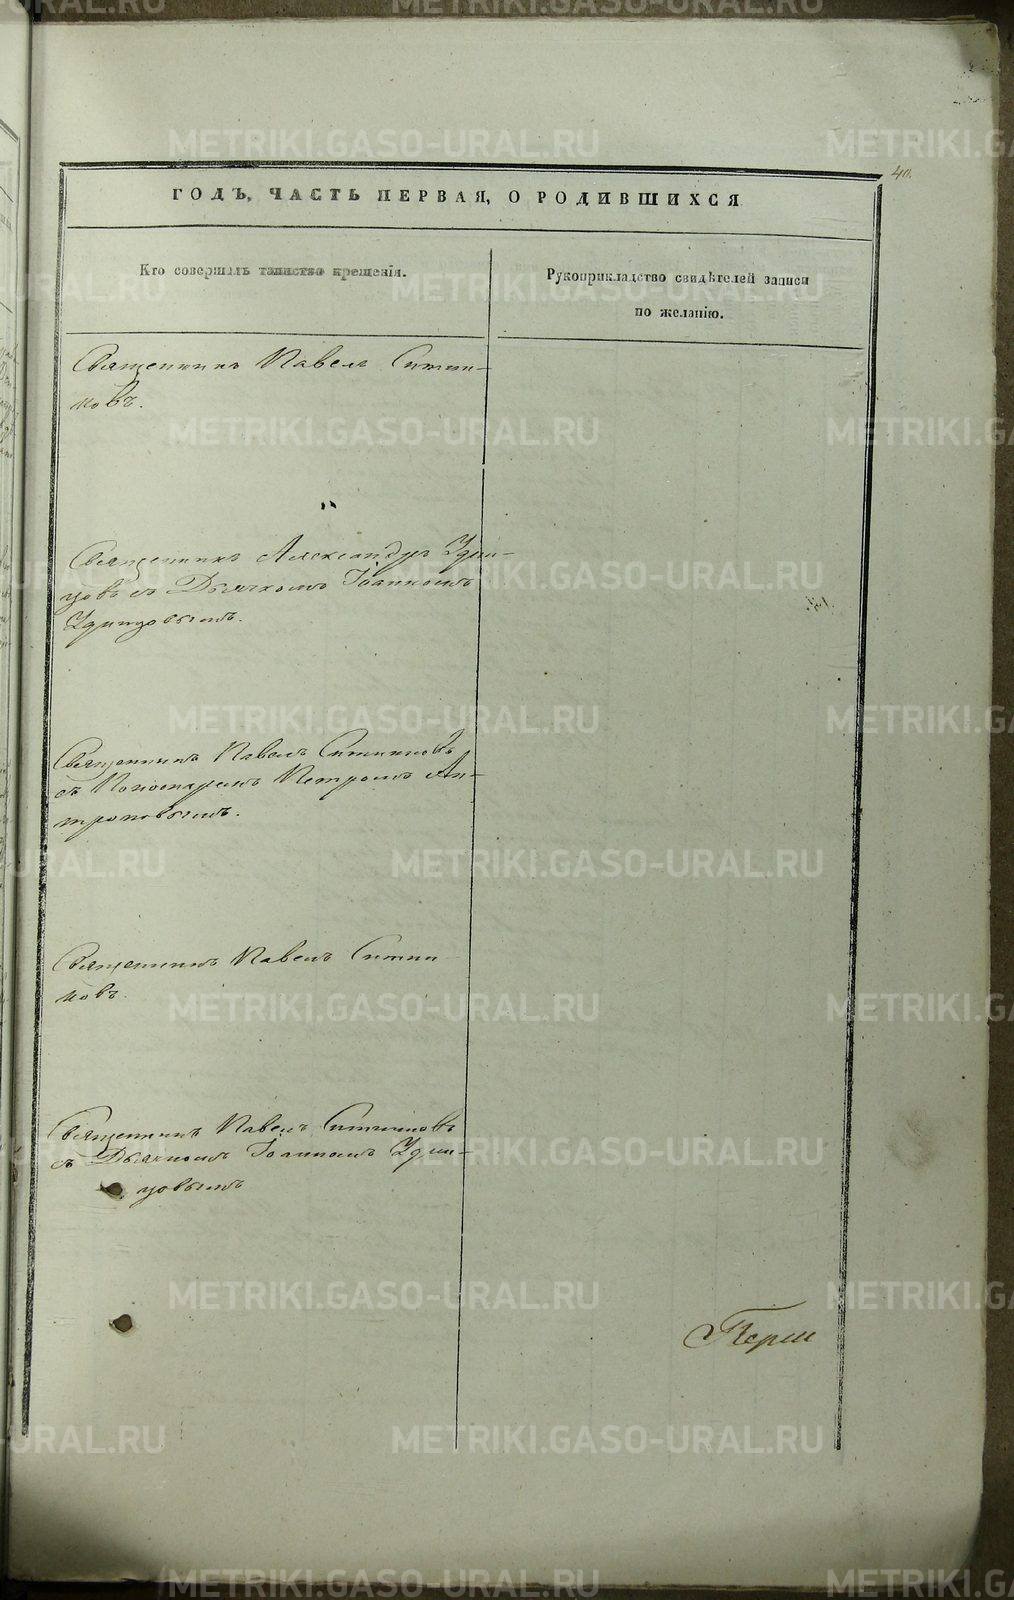 40.
ГОДЪ, ЧАСТЬ ПЕРВАЯ, О РОДИВШИХСЯ
Кто совершалъ таинство крещенія.
Рукоприкладство свидѣтелей записи
по желанію.
Священникъ Павелъ Ситни-
ковъ.
Священникъ Александръ Удин-
цовъ съ Дьячкомъ Іоанномъ
Удинцовымъ.
Священникъ Павелъ Ситниковъ
съ Пономаремъ Петромъ Ан-
троповымъ.
Священникъ Павелъ Ситни
ковъ.
Священникъ Павелъ Ситниковъ
съ Дьячкомъ Іоанномъ Удин-
цовымъ
METRIKI.GASO-URAL.RU